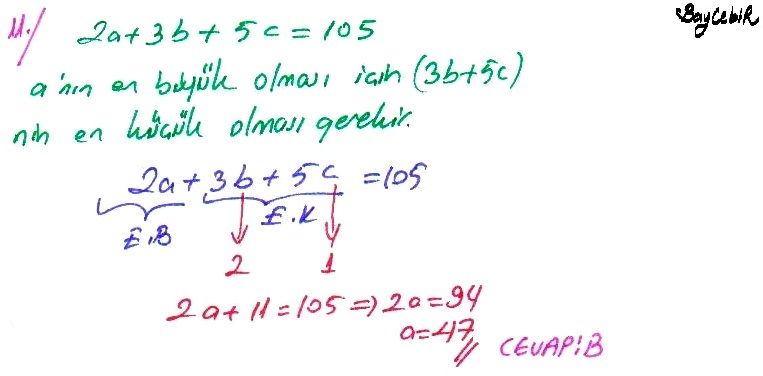 BayCebiR
11./ 2a+3b+5c=105
a'nın en büyük olması için (3b+5c)
nin en küçük olması gerekir.
2a+3b+5c=105
E.B E.K
2 1
2a+11=105⇒2a=94
a=47//
CEVAP:B